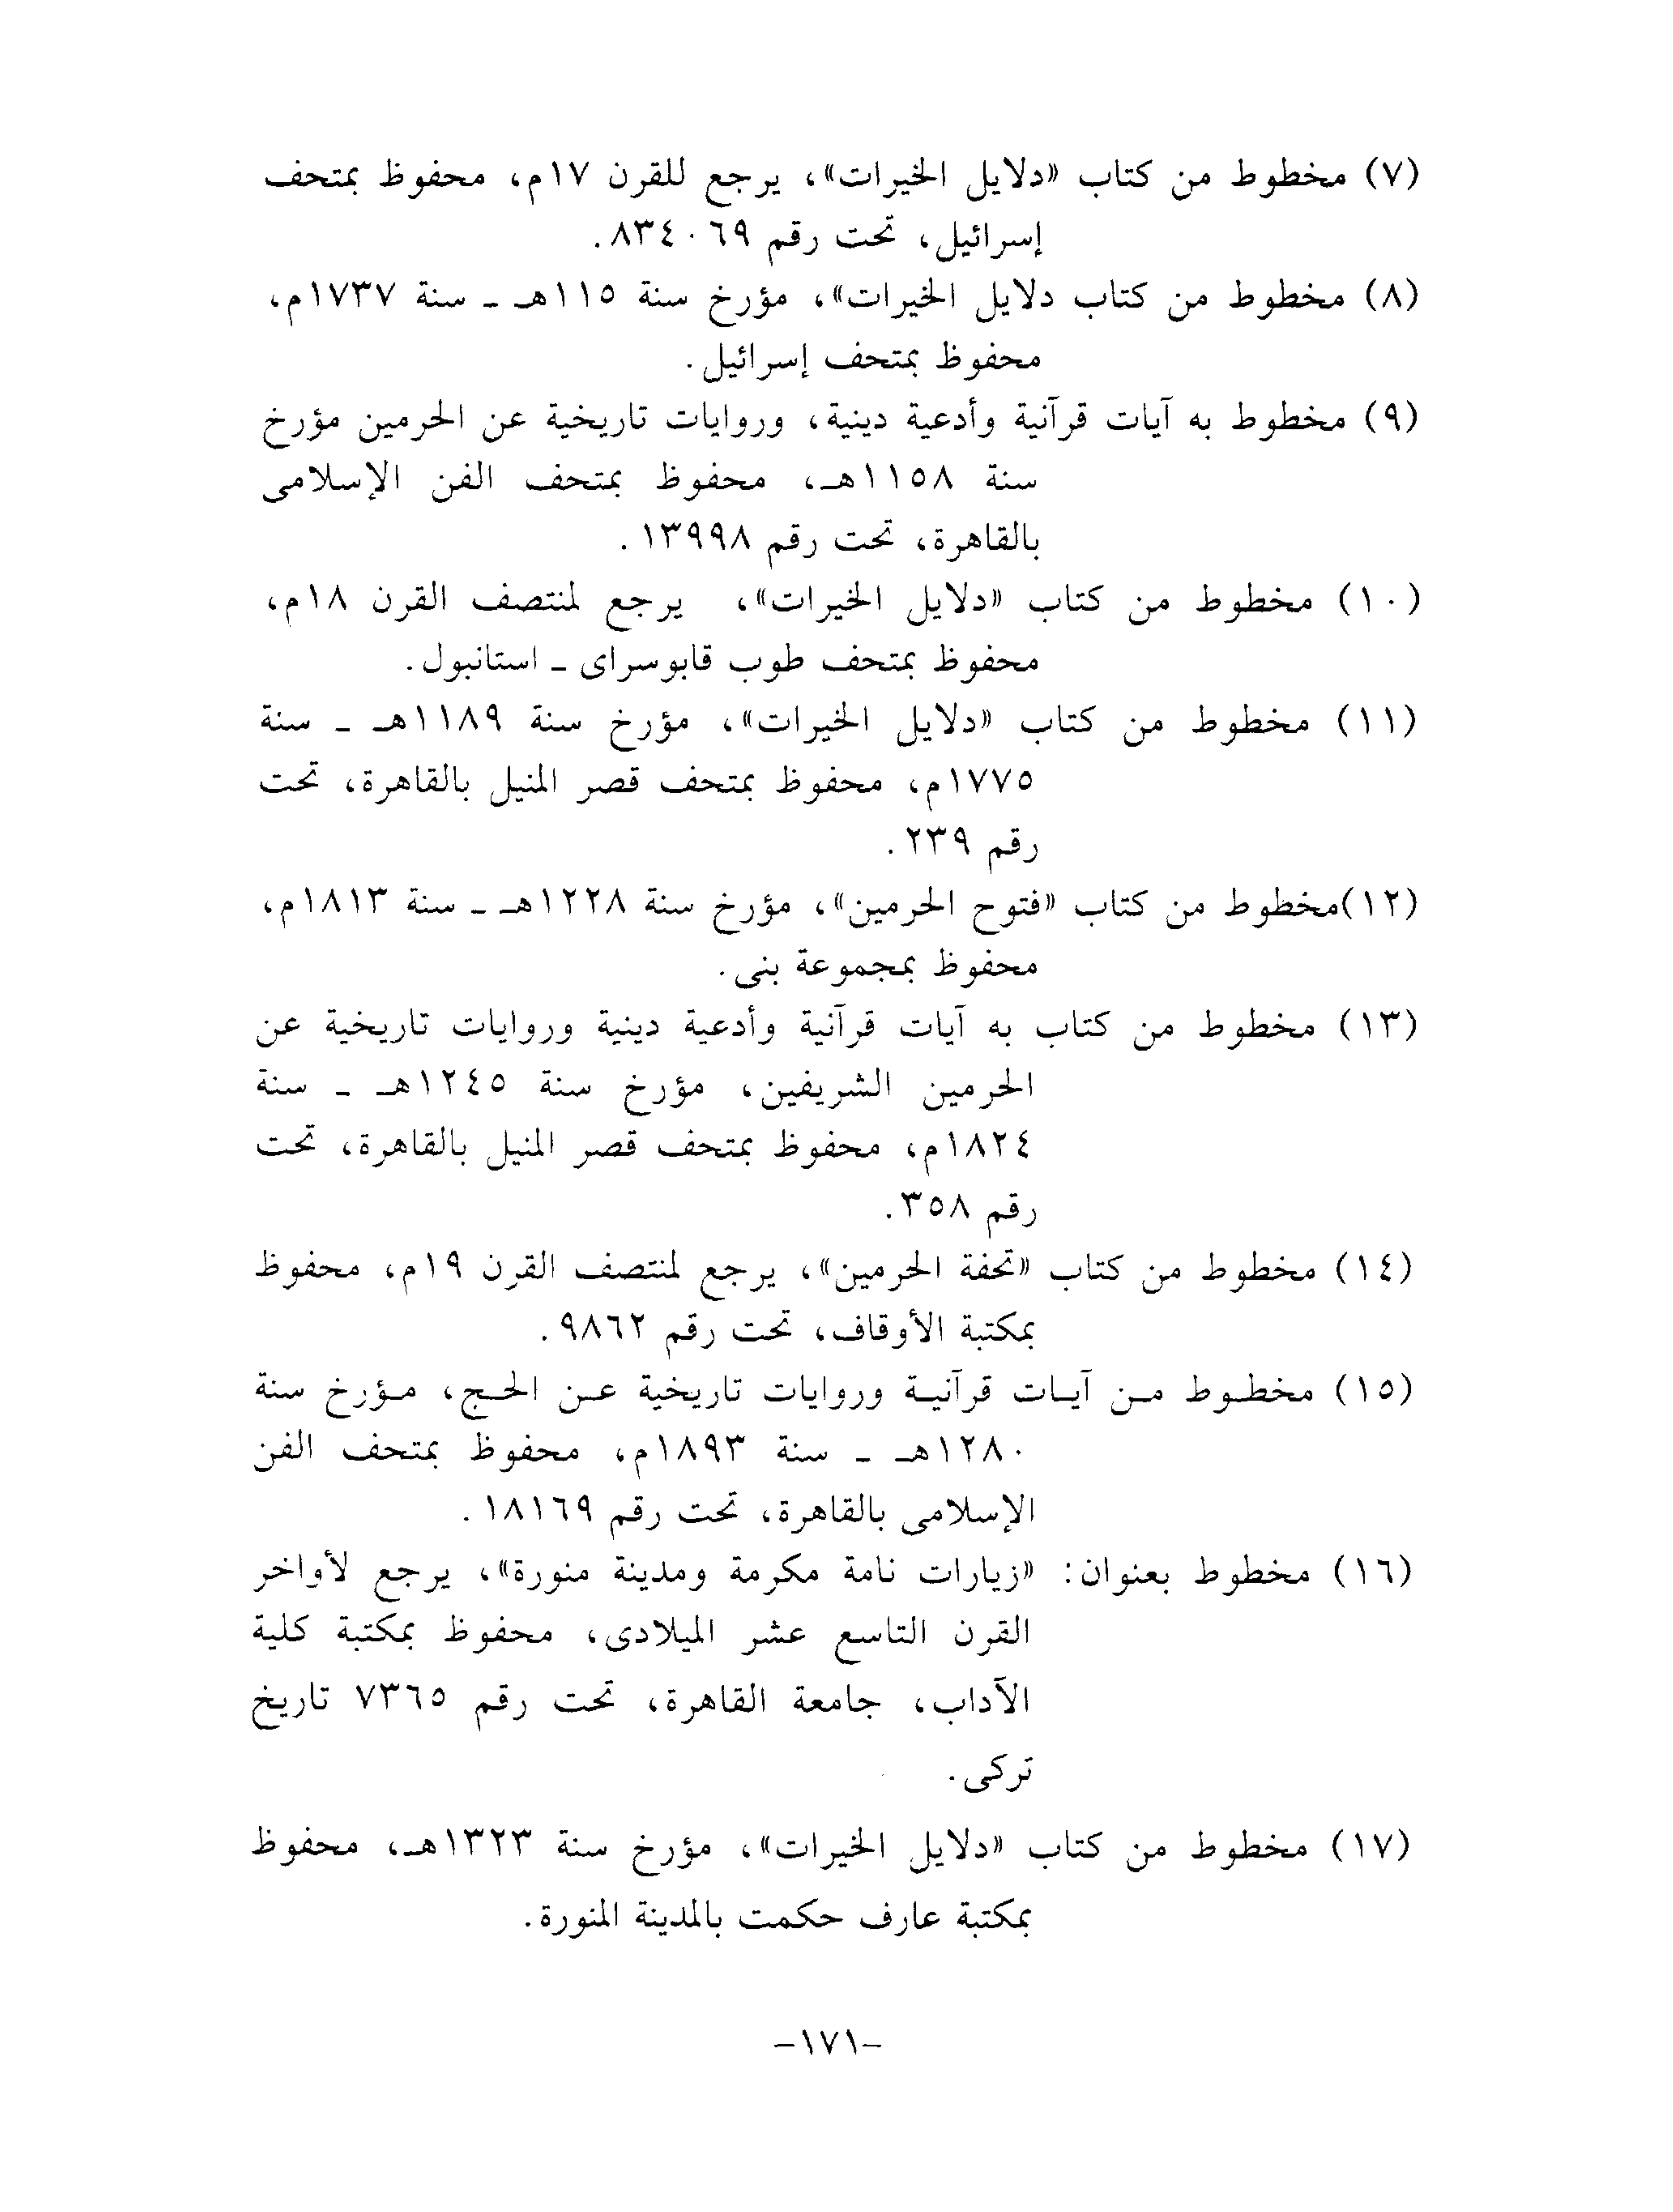 (٧) مخطوط من كتاب «دلايل الخيرات»، يرجع للقرن ١٧م، محفوظ بمتحف
إسرائيل، تحت رقم ٨٣٤٠٦٩.
(٨) مخطوط من كتاب دلايل الخيرات»، مؤرخ سنة ١١٥هـ ـ سنة ١٧٣٧م،
محفوظ بمتحف إسرائيل.
(٩) مخطوط به آيات قرآنية وأدعية دينية، وروايات تاريخية عن الحرمين مؤرخ
سنة ١١٥٨هـ، محفوظ بمتحف الفن الإسلامى
بالقاهرة، تحت رقم ١٣٩٩٨.
(١٠) مخطوط من كتاب «دلايل الخيرات»، يرجع لمنتصف القرن ١٨م،
محفوظ بمتحف طوب قابوسراى ـ استانبول.
(١١) مخطوط من كتاب «دلايل الخيرات»، مؤرخ سنة ١١٨٩هـ ـ سنة
١٧٧٥م، محفوظ بمتحف قصر المنيل بالقاهرة، تحت
رقم ٢٣٩.
(١٢)مخطوط من كتاب «فتوح الحرمين»، مؤرخ سنة ١٢٢٨هـ ـ سنة ١٨١٣م،
محفوظ بمجموعة بنى.
(١٣) مخطوط من كتاب به آيات قرآنية وأدعية دينية وروايات تاريخية عن
الحرمين الشريفين، مؤرخ سنة ١٢٤٥هـ ـ سنة
١٨٢٤م، محفوظ بمتحف قصر المنيل بالقاهرة، تحت
رقم ٣٥٨.
(١٤) مخطوط من كتاب «تحفة الحرمين»، يرجع لمنتصف القرن ١٩م، محفوظ
بمكتبة الأوقاف، تحت رقم ٩٨٦٢.
(١٥) مخطوط من آيات قرآنية وروايات تاريخية عن الحج، مؤرخ سنة
١٢٨٠هـ ـ سنة ١٨٩٣م، محفوظ بمتحف الفن
الإسلامى بالقاهرة، تحت رقم ١٨١٦٩.
(١٦) مخطوط بعنوان: «زيارات نامة مكرمة ومدينة منورة»، يرجع لأواخر
القرن التاسع عشر الميلادى، محفوظ بمكتبة كلية
الآداب، جامعة القاهرة، تحت رقم ٧٣٦٥ تاريخ
تركى.
(١٧) مخطوط من كتاب «دلايل الخيرات»، مؤرخ سنة ١٣٢٣هـ، محفوظ
بمكتبة عارف حكمت بالمدينة المنورة.
–١٧١–